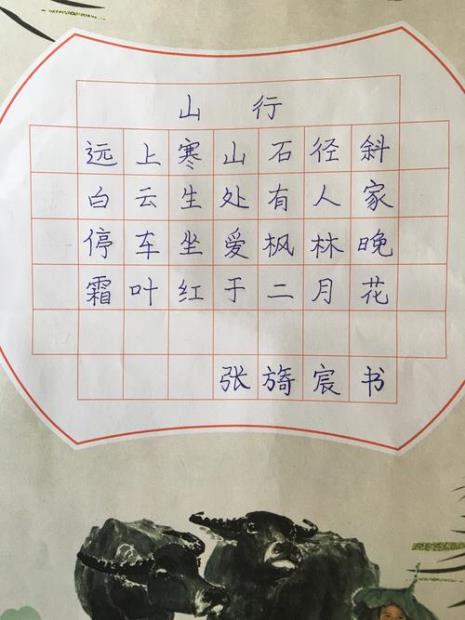 山行
远上寒山石径斜
白云生处有人家
停车坐爱枫林晚
霜叶红于二月花
张旖宸书